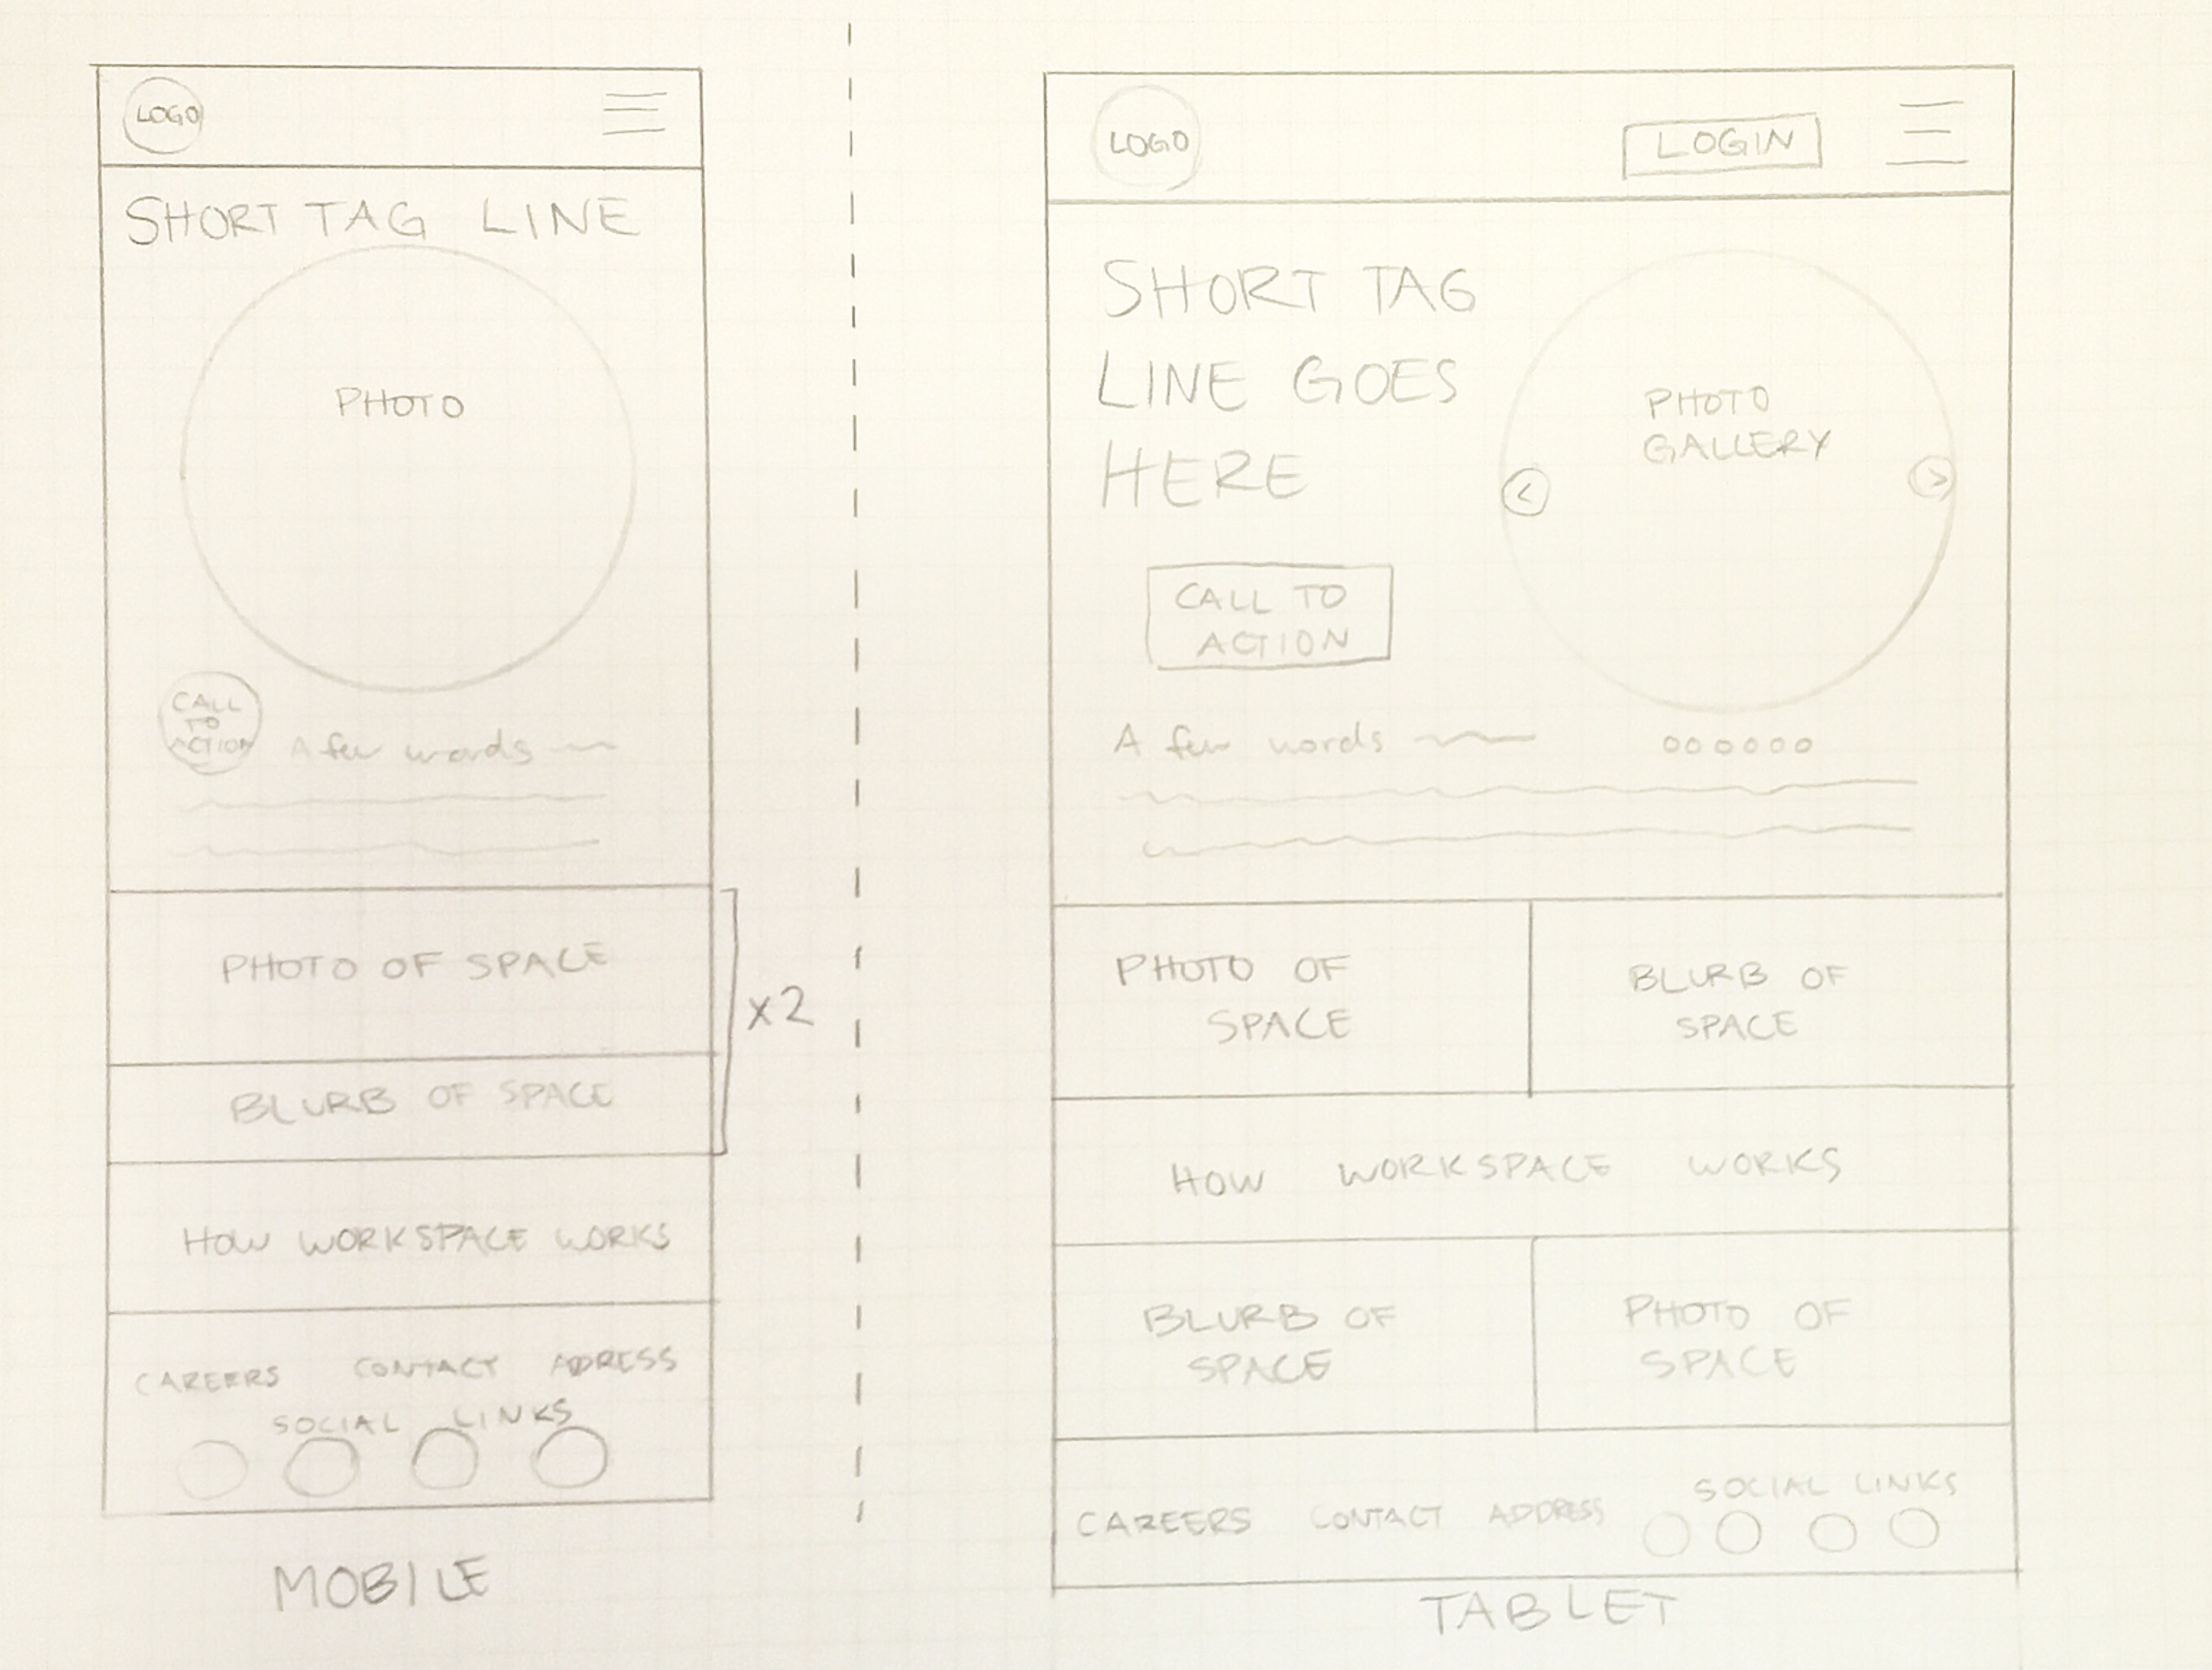 LOGO
SHORT TAG LINE
PHOTO
CALL
TO
ACTION
A few words
PHOTO OF SPACE
BLURB OF SPACE
x2
HOW WORKSPACE WORKS
CAREERS CONTACT ADDRESS
SOCIAL LINKS
MOBILE
LOGO
LOGIN
SHORT TAG
LINE GOES
HERE
PHOTO
GALLERY
<
>
CALL TO
ACTION
A few words
PHOTO OF
SPACE
BLURB OF
SPACE
HOW WORKSPACE WORKS
BLURB OF
SPACE
PHOTO OF
SPACE
CAREERS CONTACT ADDRESS
SOCIAL LINKS
TABLET